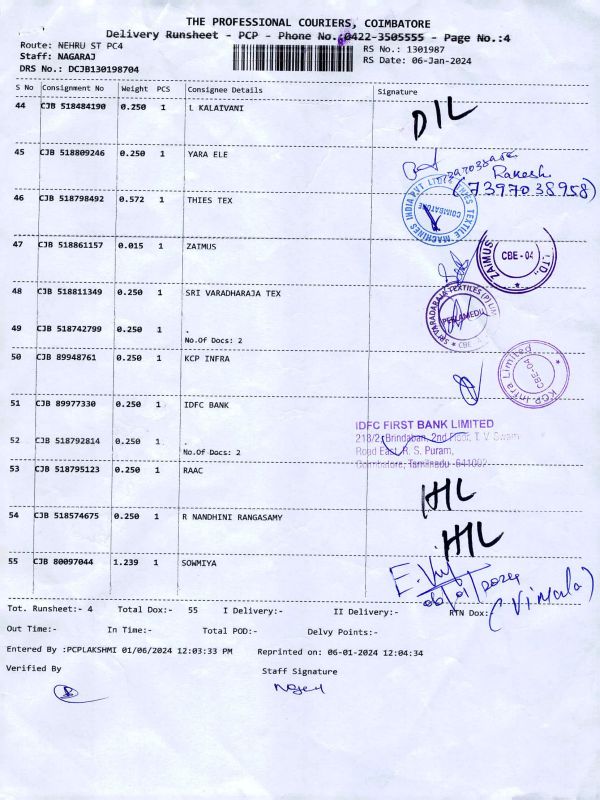 THE PROFESSIONAL COURIERS, COIMBATORE
Delivery Runsheet - PCP - Phone No. 0422-3505555 - Page No.:4
Route: NEHRU ST PC4
RS No.: 1301987
Staff: NAGARAJ
RS Date: 06-Jan-2024
DRS No.: DCJB130198704
S No Consignment No Weight PCS Consignee Details Signature
44 CJB 518484190 0.250 1 L KALAIVANI
DIL
45 CJB 518809246 0.250 1 YARA ELE
Rakesh
(7397038958)
46 CJB 518798492 0.572 1 THIES TEX
TEXTILE MACHINES INDIA PVT LTD
COIMBATORE
47 CJB 518861157 0.015 1 ZAIMUS
ZAIMUS LTD.
CBE-04
48 CJB 518811349 0.250 1 SRI VARADHARAJA TEX
SRI VARADARAJA TEXTILES (P) LIM
PEELAMEDU
CBE-4
49 CJB 518742799 0.250 1 .
No.Of Docs: 2
50 CJB 89948761 0.250 1 KCP INFRA
KCP Infra Limited
CBE-04
51 CJB 89977330 0.250 1 IDFC BANK
IDFC FIRST BANK LIMITED
218/2, Brindaban, 2nd Floor, T. V. Swam
Road East, R. S. Puram,
Coimbatore, Tamilnadu - 641002
52 CJB 518792814 0.250 1 .
No.Of Docs: 2
53 CJB 518795123 0.250 1 RAAC
HIL
54 CJB 518574675 0.250 1 R NANDHINI RANGASAMY
HIL
55 CJB 80097044 1.239 1 SOWMIYA
06/01/2024
(Vimala)
Tot. Runsheet:- 4 Total Dox:- 55 I Delivery:- II Delivery:- RTN Dox:-
Out Time:- In Time:- Total POD:- Delvy Points:-
Entered By :PCPLAKSHMI 01/06/2024 12:03:33 PM Reprinted on: 06-01-2024 12:04:34
Verified By Staff Signature